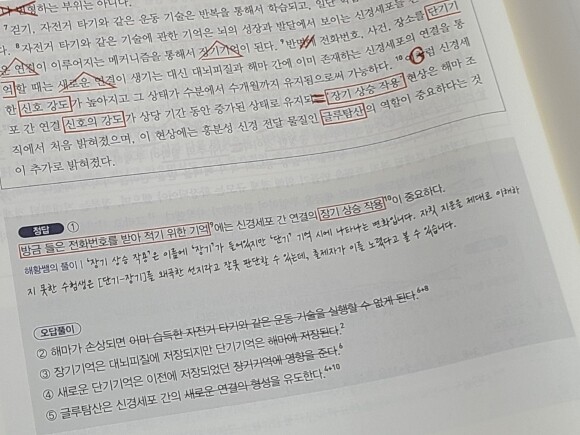 하는 부위는 아니다.
⁷걷기, 자전거 타기와 같은 운동 기술은 반복을 통해서 학습되고, 일단
다. ⁸자전거 타기와 같은 기술에 관한 기억은 뇌의 성장과 발달에서 보이는 신경세포들
운 연결이 이루어지는 메커니즘을 통해서 장기기억이 된다. ⁹반면에 전화번호, 사건, 장소를 단기기
억할 때는 새로운 연결이 생기는 대신 대뇌피질과 해마 간에 이미 존재하는 신경세포의 연결을 통
한 신호 강도가 높아지고 그 상태가 수분에서 수개월까지 유지됨으로써 가능하다. ¹⁰ 신경세
포 간 연결 신호의 강도가 상당 기간 동안 증가된 상태로 유지되는 '장기 상승 작용' 현상은 해마 조
직에서 처음 밝혀졌으며, 이 현상에는 흥분성 신경 전달 물질인 글루탐산의 역할이 중요하다는 것
이 추가로 밝혀졌다.
정답 ①
방금 들은 전화번호를 받아 적기 위한 기억⁹에는 신경세포 간 연결의 장기 상승 작용¹⁰이 중요하다.
해황쌤의 풀이 | '장기 상승 작용'은 이름에 '장기'가 들어있지만 '단기' 기억 시에 나타나는 변화입니다. 자칫 지문을 제대로 이해하
지 못한 수험생은 [단기-장기]를 왜곡한 선지라고 잘못 판단할 수 있는데, 출제자가 이를 노렸다고 볼 수 있습니다.
오답풀이
② 해마가 손상되면 이미 습득한 자전거 타기와 같은 운동 기술을 실행할 수 없게 된다.⁶⁺⁸
③ 장기기억은 대뇌피질에 저장되지만 단기기억은 해마에 저장된다.²
④ 새로운 단기기억은 이전에 저장되었던 장기기억에 영향을 준다.⁶
⑤ 글루탐산은 신경세포 간의 새로운 연결의 형성을 유도한다.⁴⁺¹⁰